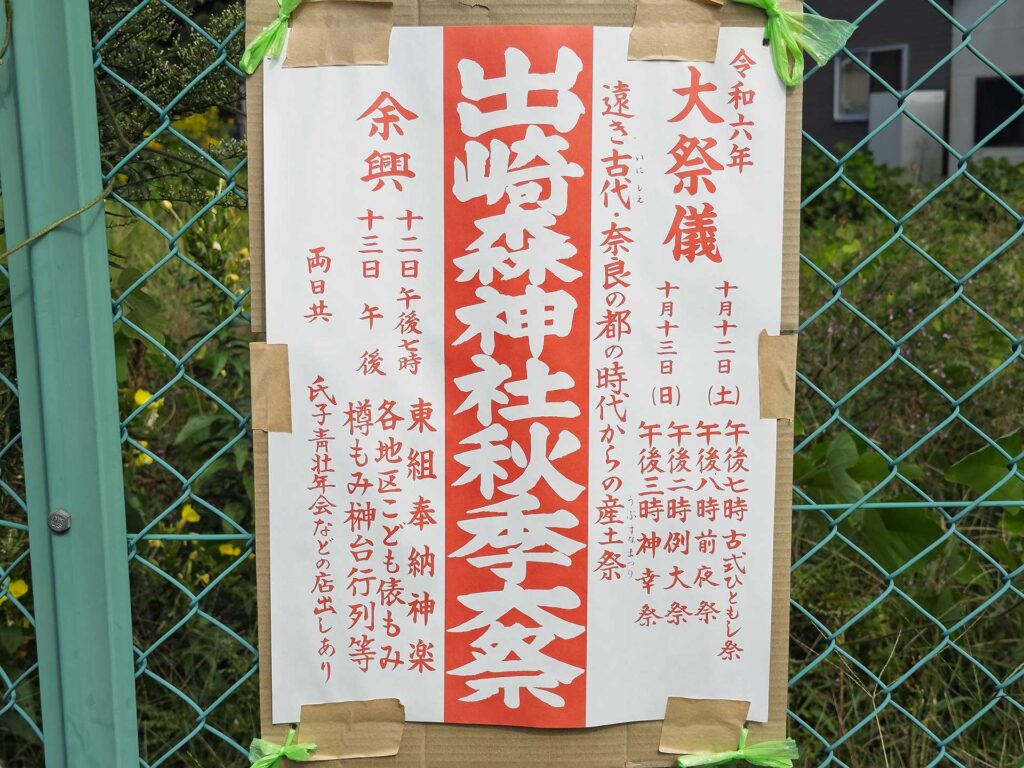 令和六年
大祭儀
十月十二日(土)
午後七時 古式ひともし祭
午後八時前夜祭
十月十三日(日)
午後二時例大祭
午後三時神幸祭
遠き古代・奈良の都の時代からの産土祭
いにしえ
うぶすなまつり
出崎森神社秋季大祭
余興
十二日午後七時
東組奉納神楽
十三日午後
各地区こども俵もみ
樽もみ榊台行列等
両日共
氏子青壮年会などの店出しあり